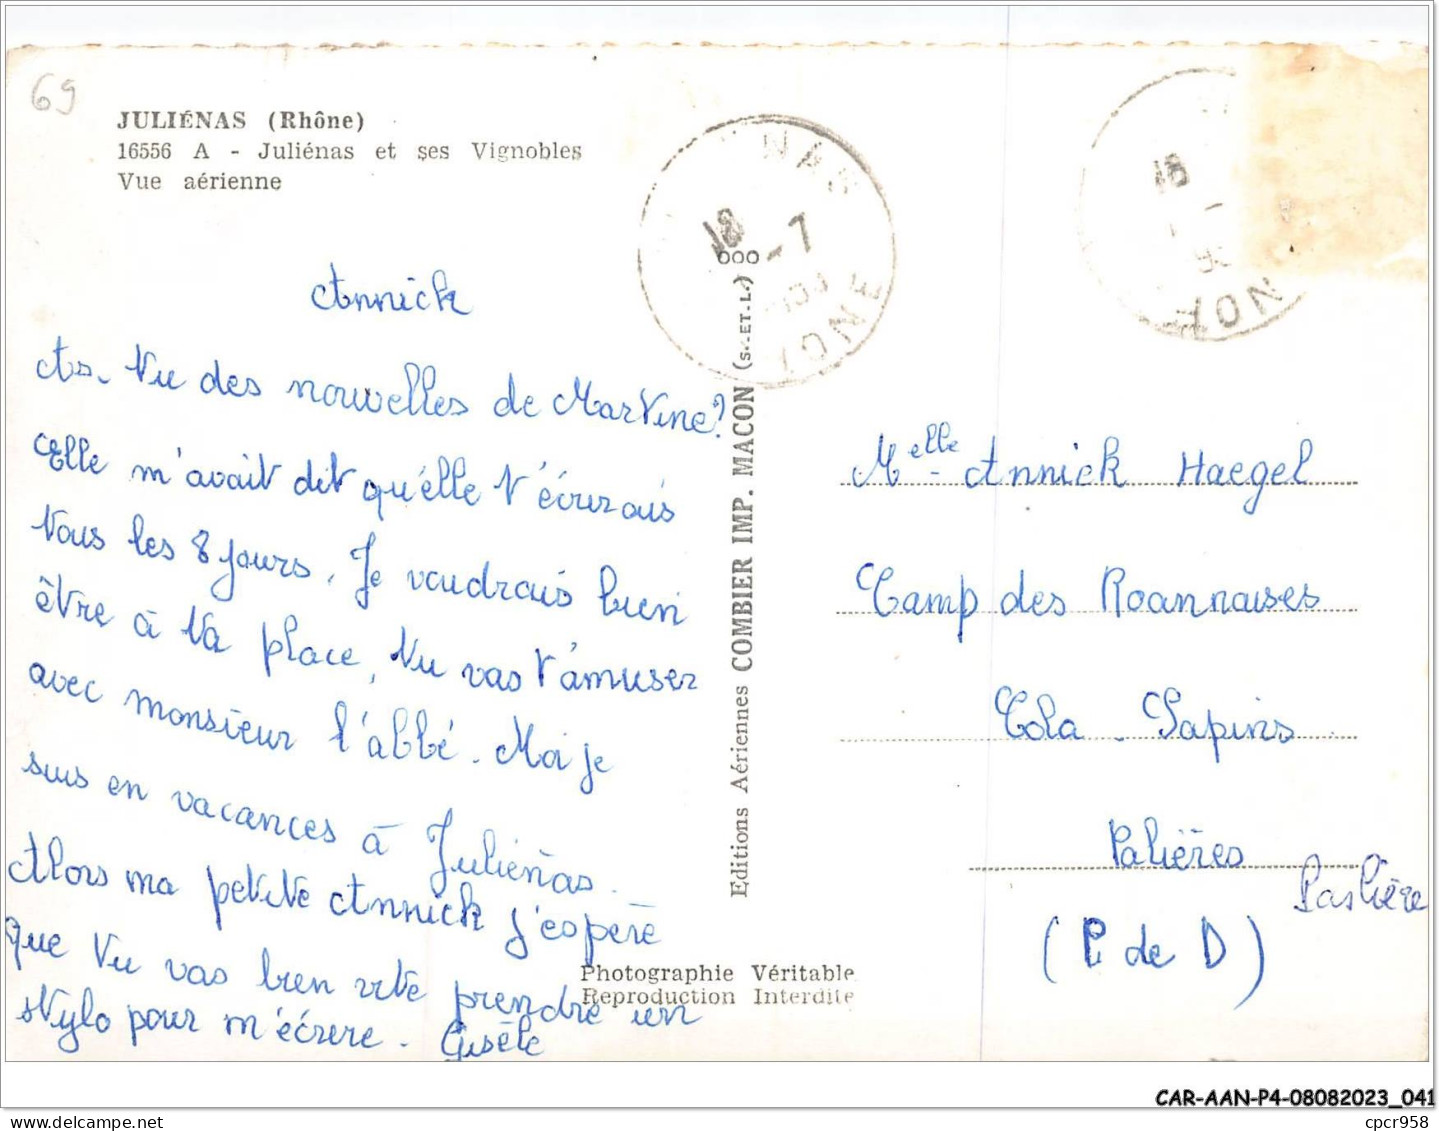 69
JULIÉNAS (Rhône)
16556 A - Juliénas et ses Vignobles
Vue aérienne
NAS
18 - 7
Annick
As. tu des nouvelles de Martine?
Elle m'avait dit qu'elle t'écrirais
tous les 8 jours. Je voudrais bien
être à ta place, tu vas t'amuser
avec monsieur l'abbé. Moi je
suis en vacances à Juliénas.
Alors ma petite Annick j'espère
que tu vas bien vite prendre un
stylo pour m'écrire. Gisèle
Editions Aériennes COMBIER IMP. MACON (S.-ET-L.)
Photographie Véritable
Reproduction Interdite
18
Melle - Annick Haegel
Camp des Roannaises
Cola - Sapins
Palières
Paslière
(P. de D)
CAR-AAN-P4-08082023_041
https://www.delcampe.net
cpcr958